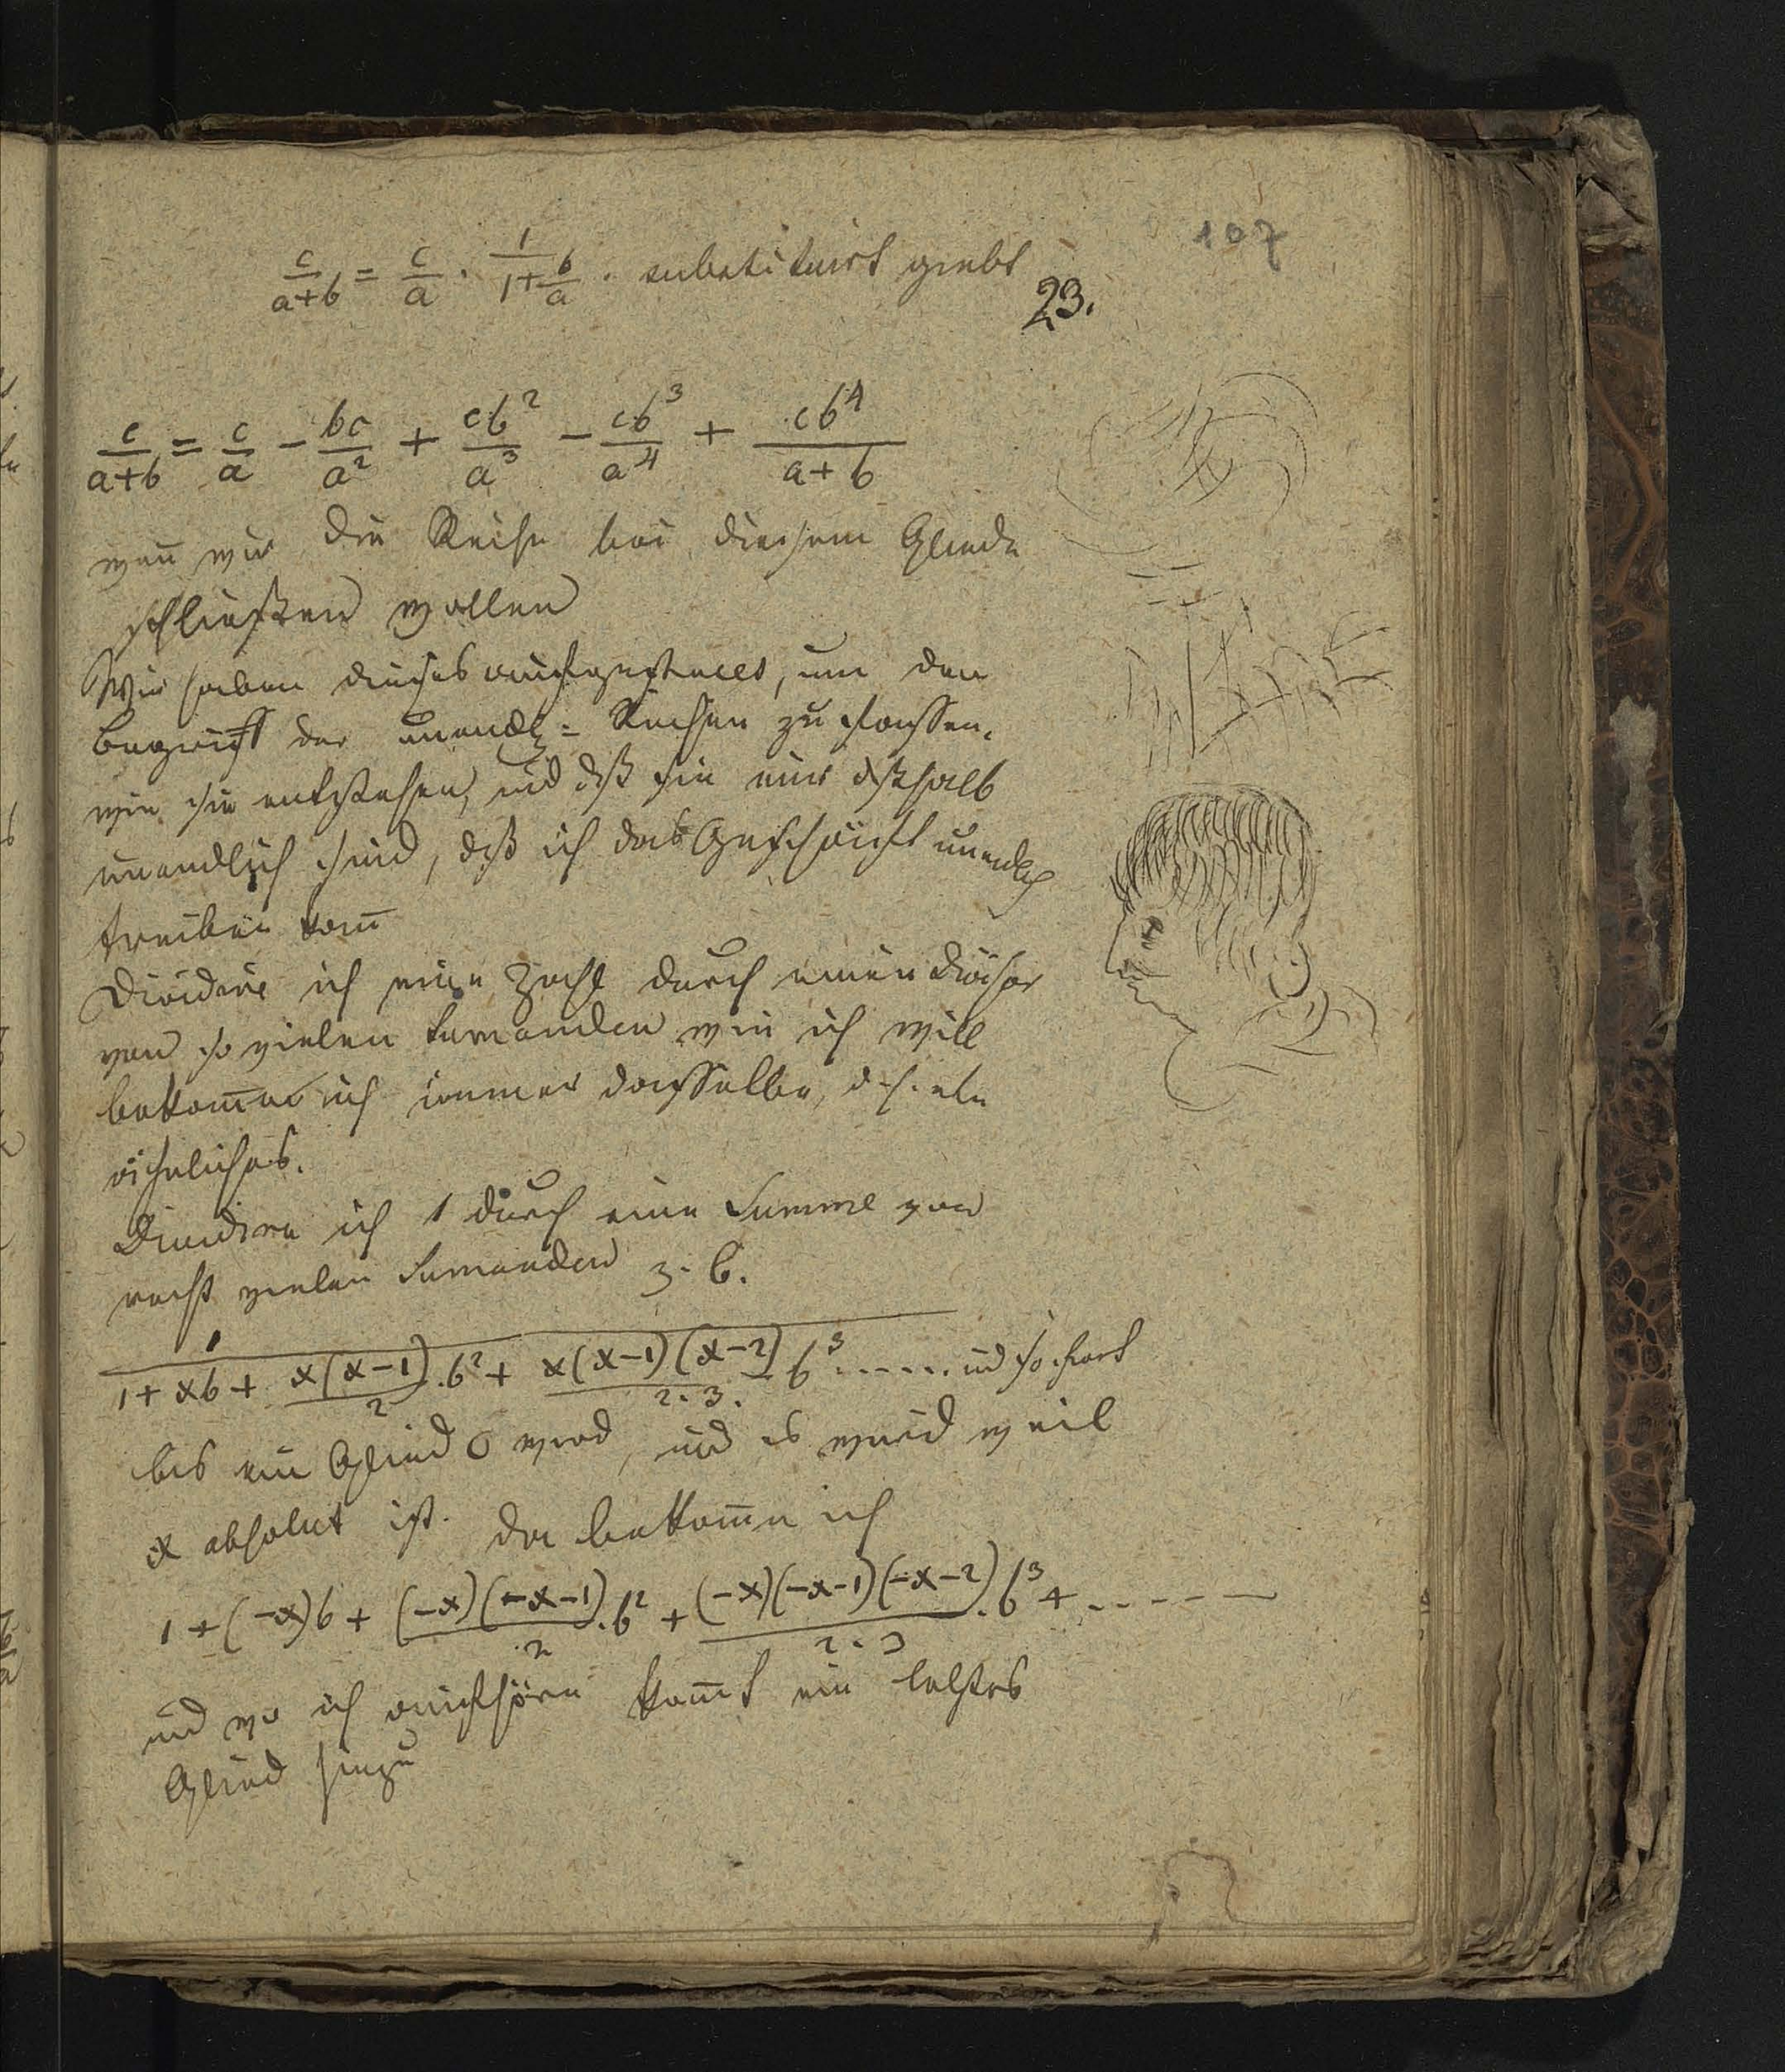 107
c/(a+b) = c/a · 1/(1+b/a) · substituirt giebt
23.
c/(a+b) = c/a − bc/a² + cb²/a³ − cb³/a⁴ + cb⁴/(a+b)
wen̄ wir die Reihe bei diesem Gliede
schließen wollen
Wir haben dieses aufgestellt, um den
Begriff der unendl= Reihen zu fassen.
wie sie entstehen, und dß sie nur dßhalb
unendlich sind, dß ich das Geschäft unendlich
treiben kan̄
Dividire ich eine Zahl durch einen Divisor
von so vielen Sumanden wie ich will
bekom̄e ich immer dasselbe, d.h. ein
ähnliches.
Dividire ich 1 durch eine Summe von
recht vielen Sumanden z. B.
1/(1 + xb + x(x−1)/2 · b² + x(x−1)(x−2)/2·3· b³ ...... und so fort
bis ein Glied 0 wird, und es wird weil
x absolut ist. da bekom̄e ich
1 + (−x)b + (−x)(−x−1)/2 · b² + (−x)(−x−1)(−x−2)/2·3 · b³ + - - - - -
und wo ich aufhöre kom̄t ein letztes
Glied hinzu